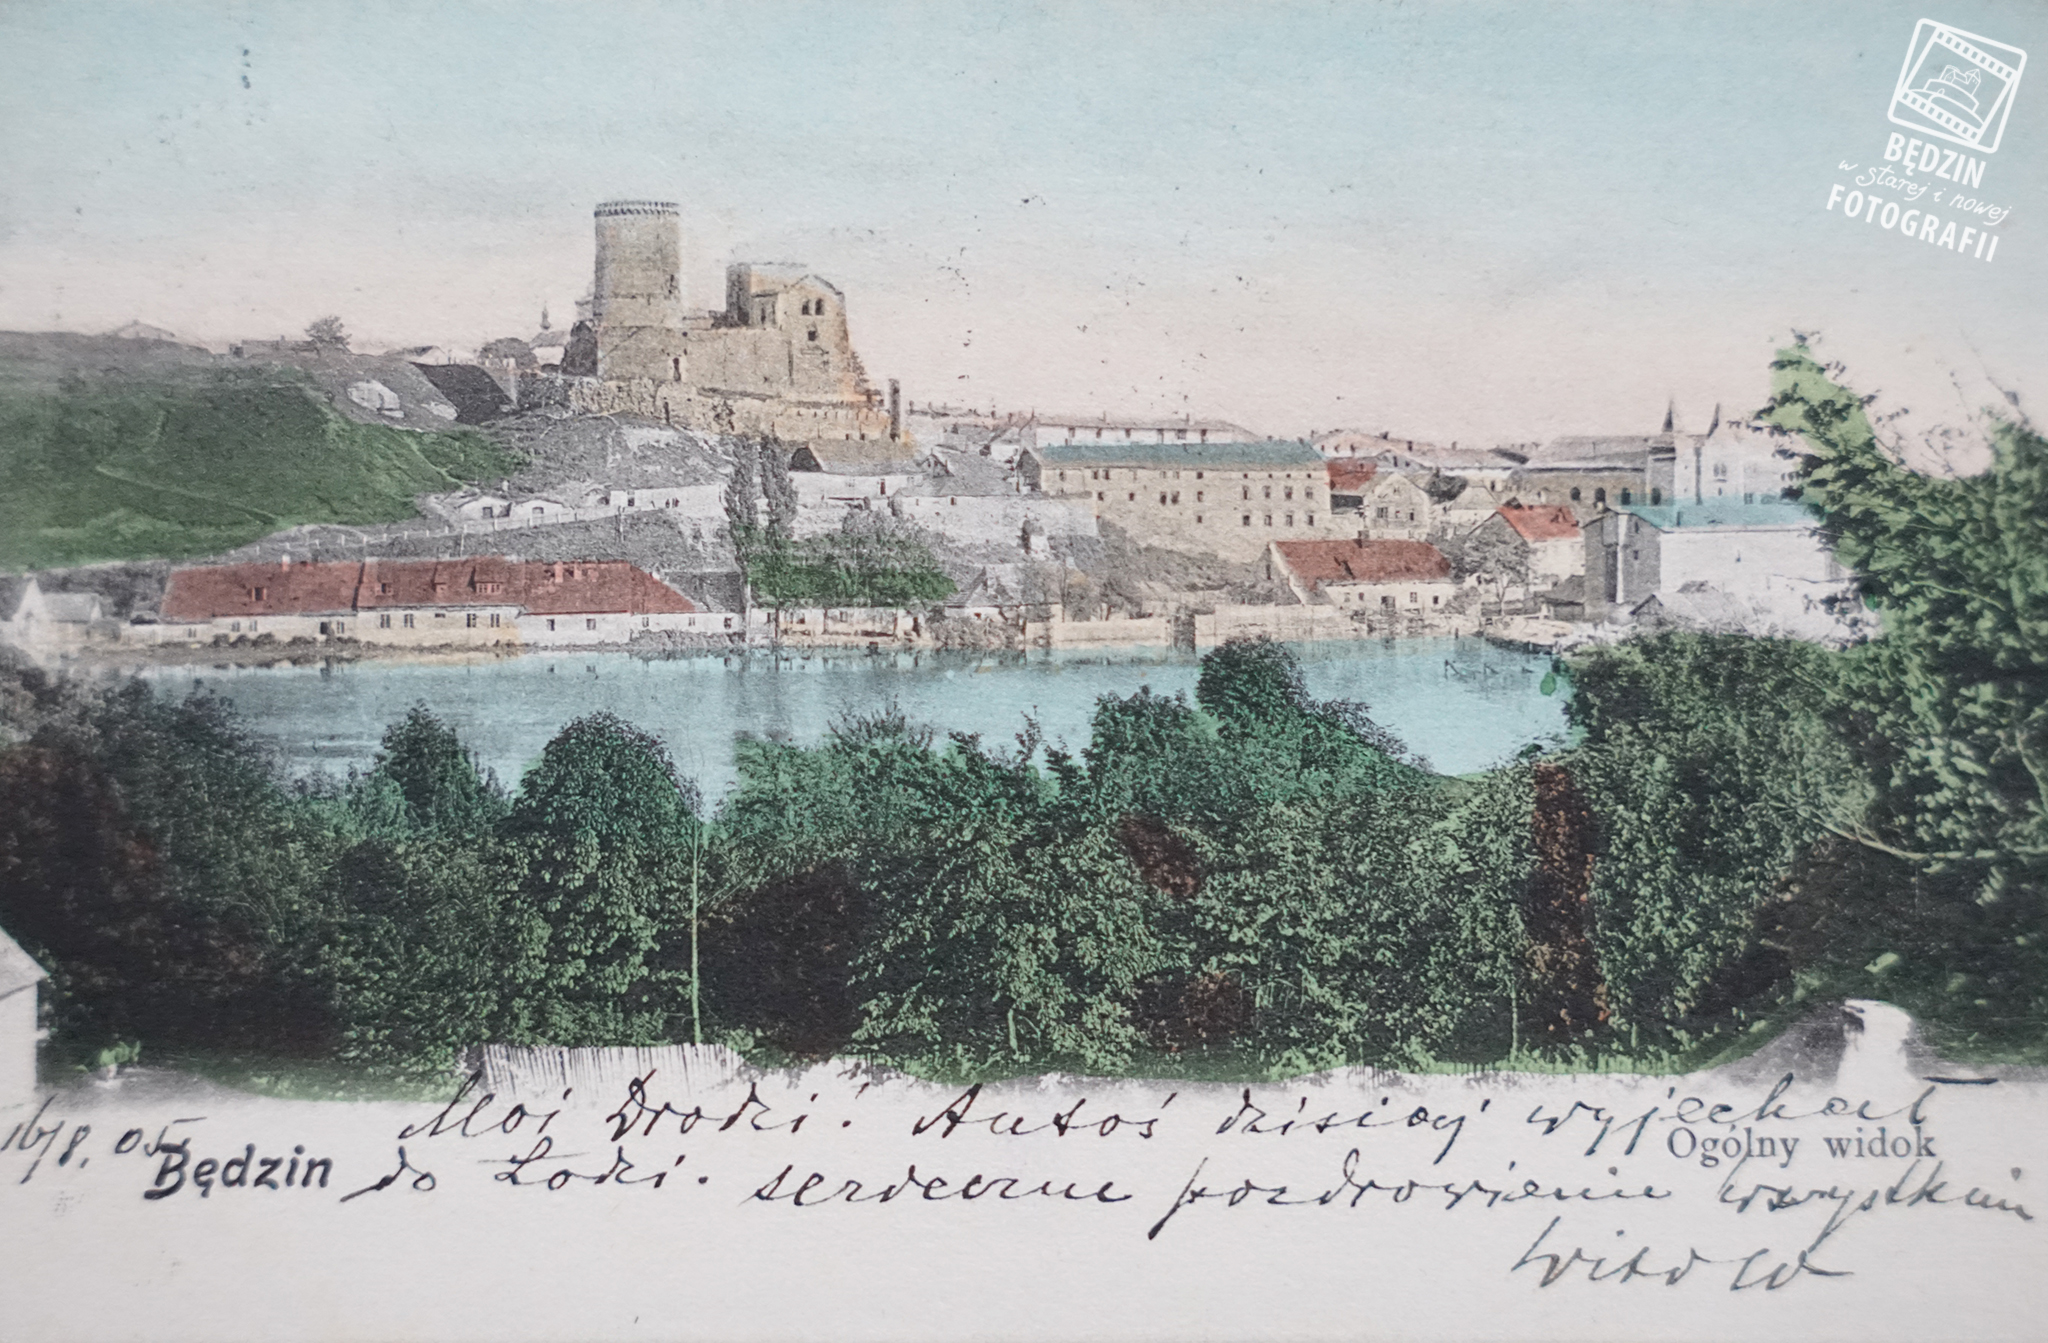 BĘDZIN
w starej i nowej
FOTOGRAFII
16/8. 05.
Moi Drodzi! Antoś dzisiaj wyjechał
Ogólny widok
Będzin
do Łodzi. serdeczne pozdrowienia wszystkim
Witold